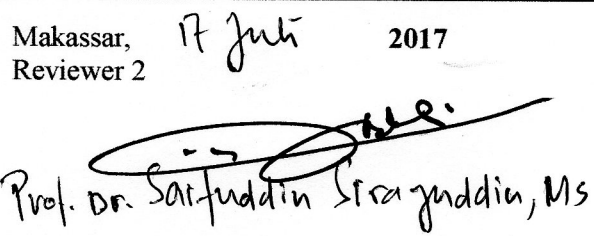 Makassar, 17 Juli 2017
Reviewer 2
Prof. Dr. Saifuddin Sirajuddin, Ms